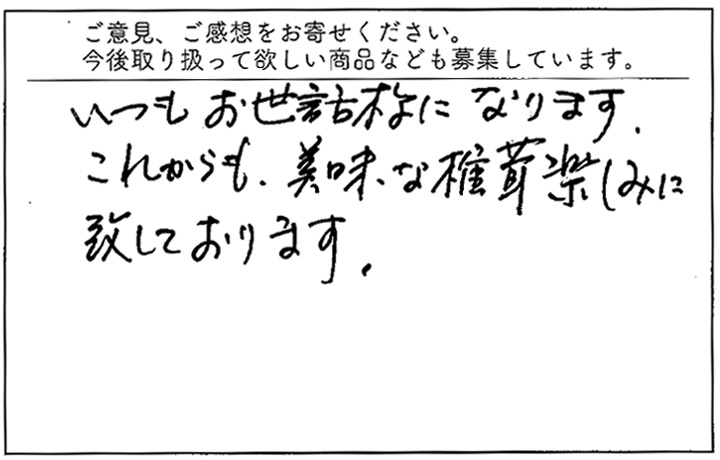 ご意見、ご感想をお寄せください。
今後取り扱って欲しい商品なども募集しています。
いつもお世話様になります。
これからも、美味な椎茸楽しみに
致しております。